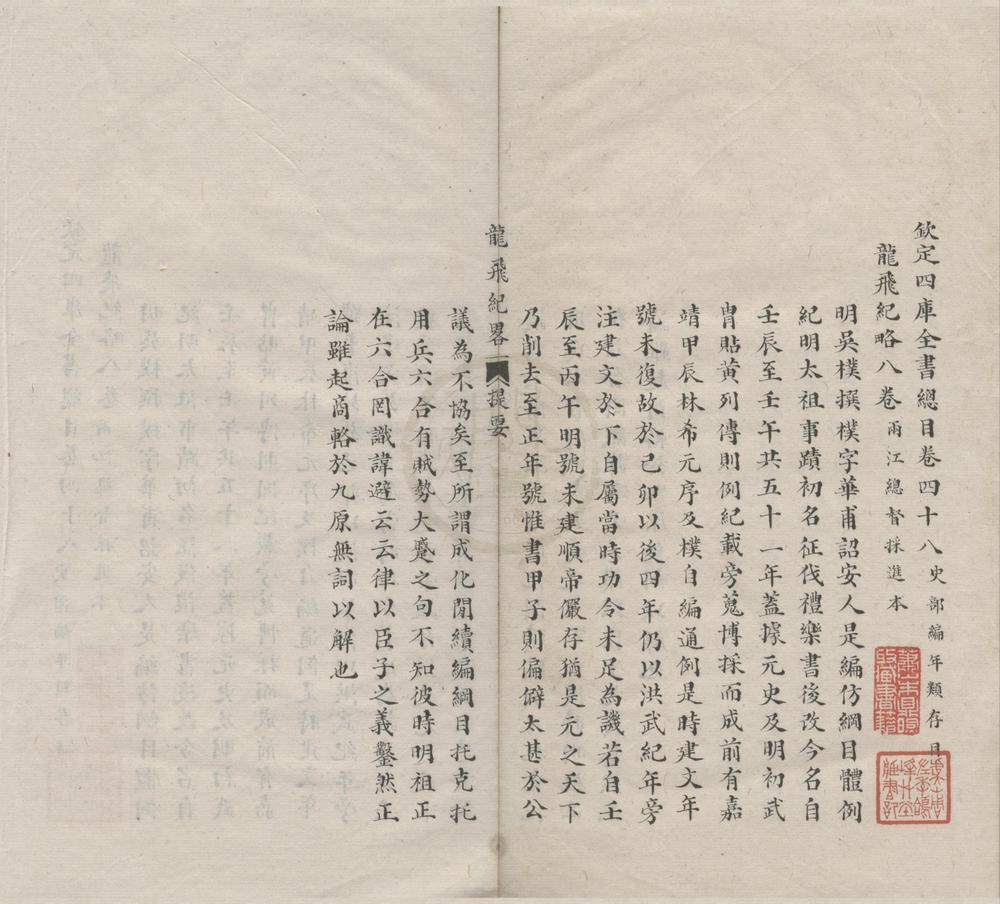 欽定四庫全書總目卷四十八史部編年類存目
龍飛紀略八卷兩江總督採進本
明吳樸撰樸字華甫詔安人是編仿綱目體例
紀明太祖事蹟初名征伐禮樂書後改今名自
壬辰至壬午共五十一年蓋據元史及明初武
冑貼黃列傳則例紀載旁蒐博採而成前有嘉
靖甲辰林希元序及樸自編通例是時建文年
號未復故於己卯以後四年仍以洪武紀年旁
注建文於下自屬當時功令未足為譏若自壬
辰至丙午明號未建順帝儼存猶是元之天下
乃削去至正年號惟書甲子則偏僻太甚於公
龍飛紀畧
提要
議為不協矣至所謂成化閒續編綱目托克托
用兵六合有賊勢大蹙之句不知彼時明祖正
在六合罔識諱避云云律以臣子之義鑿然正
論雖起商輅於九原無詞以解也